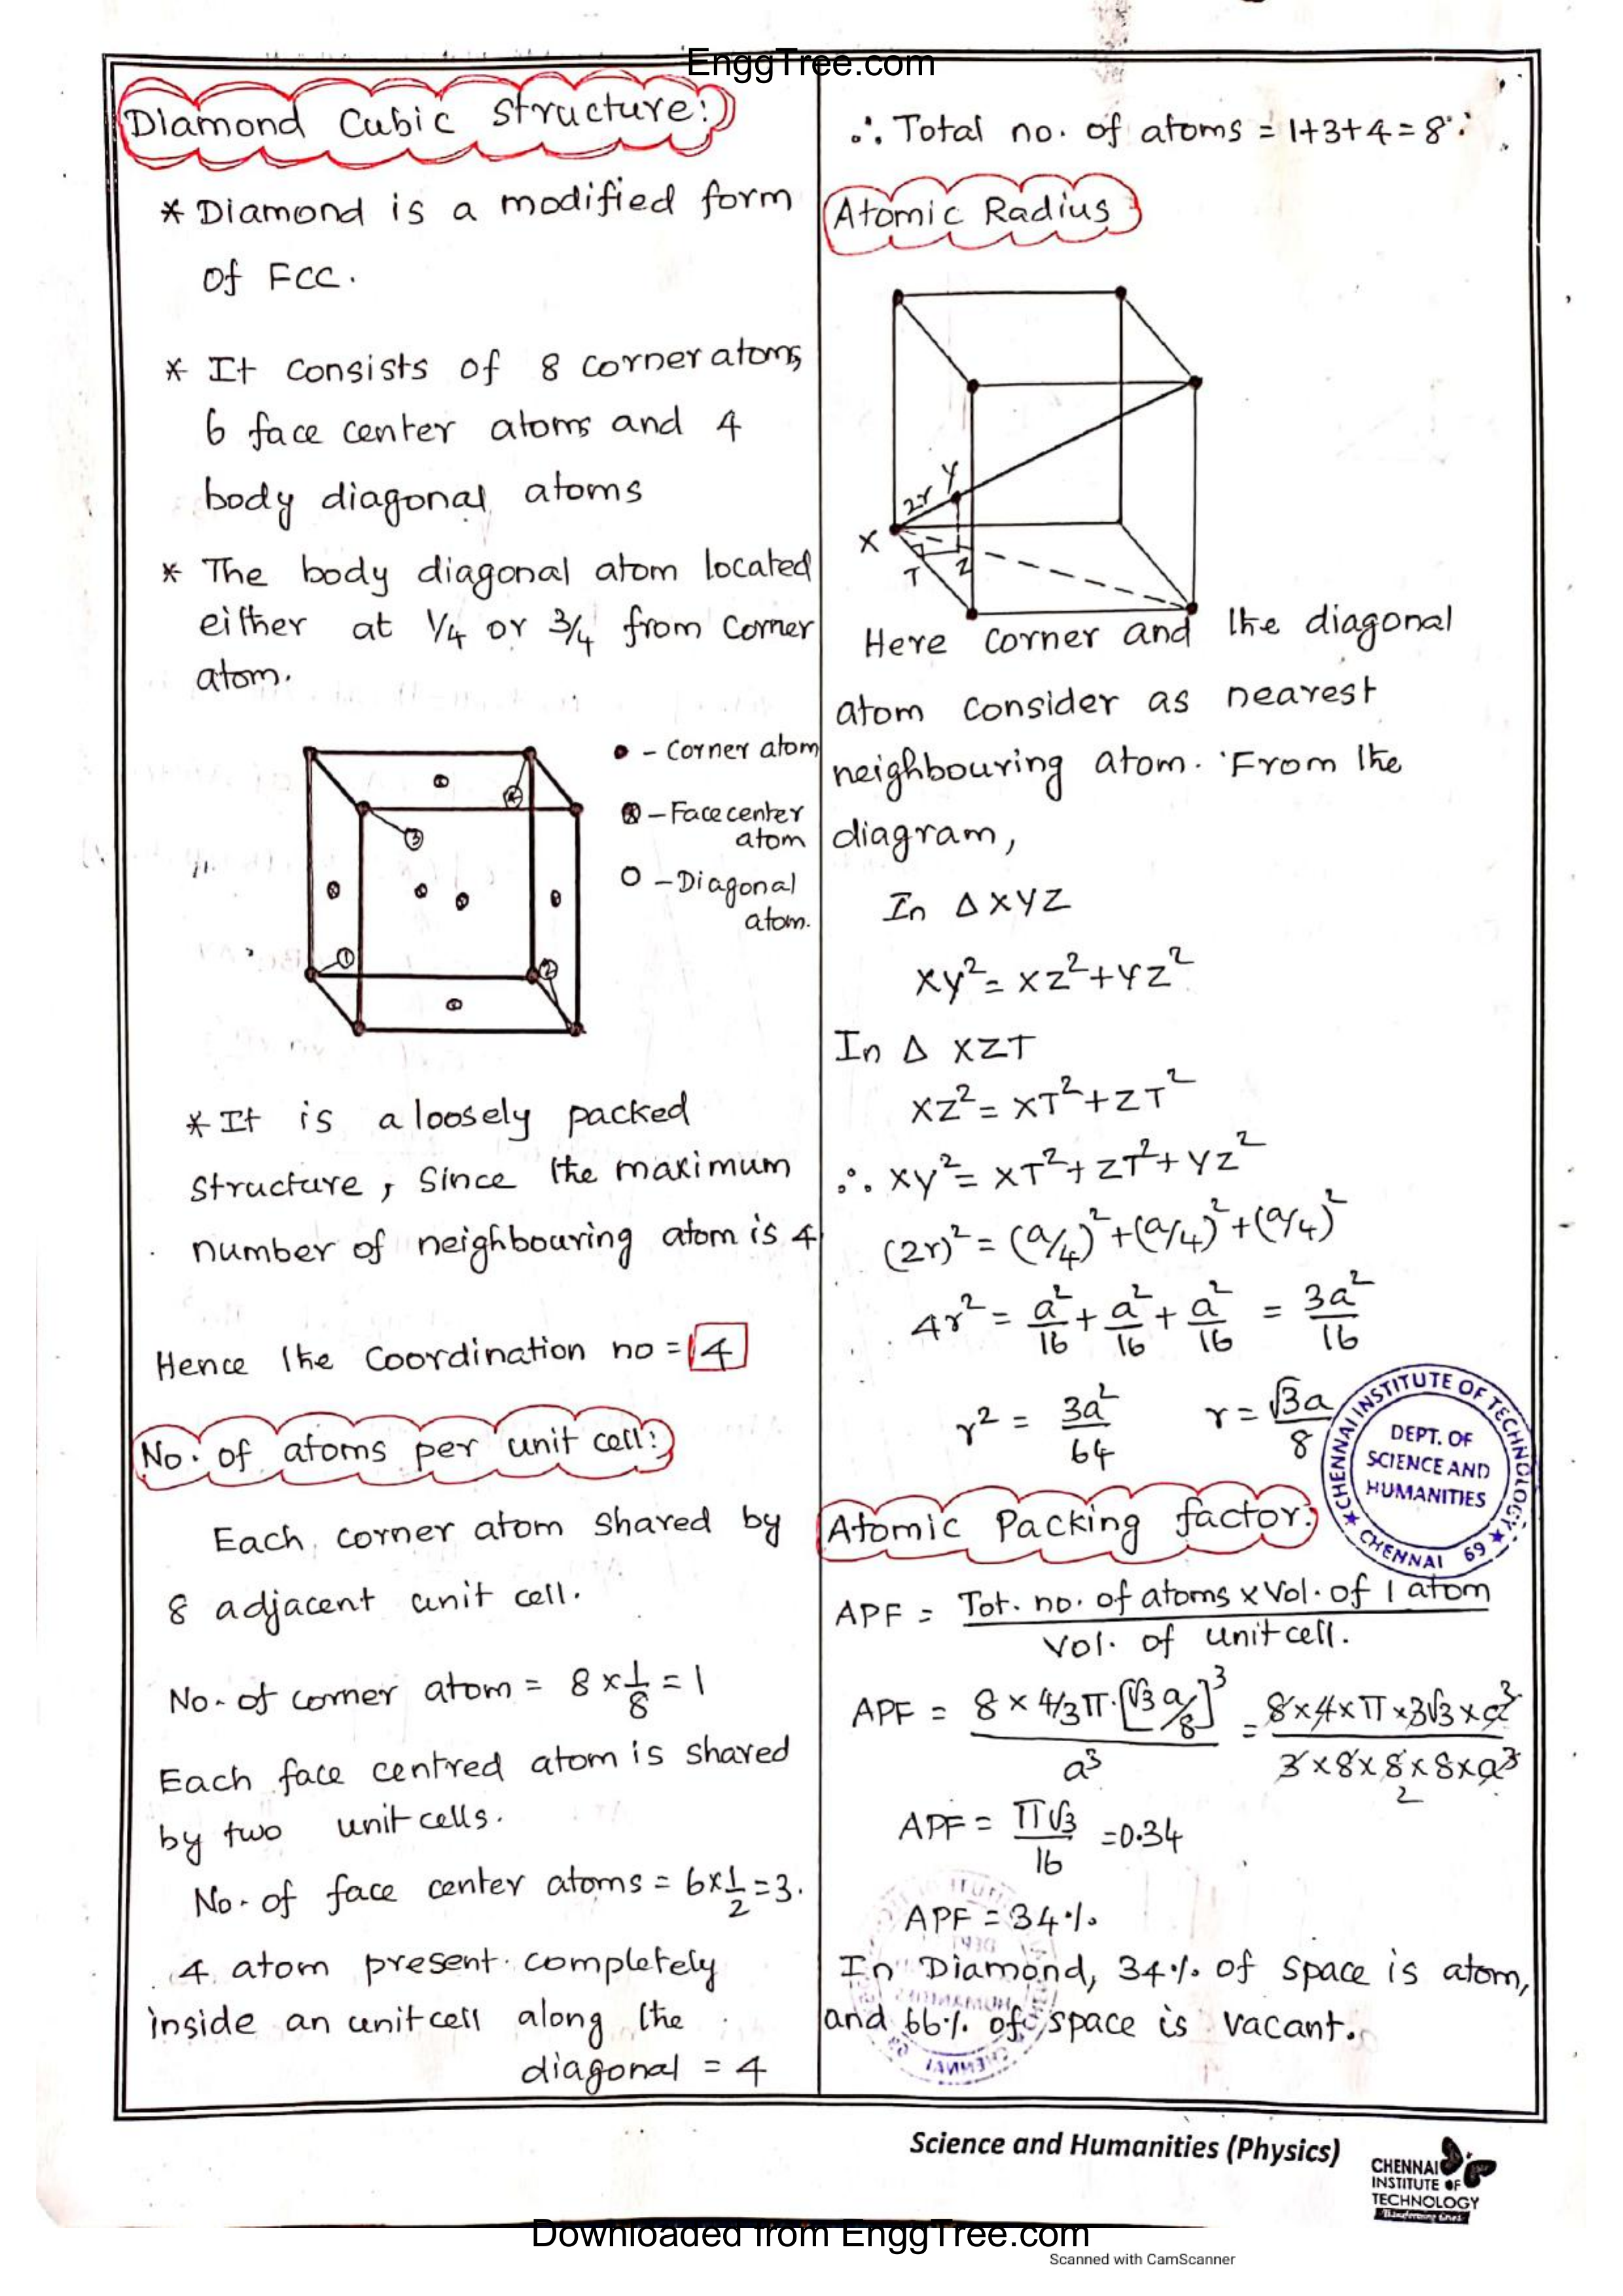 EnggTree.com
Diamond Cubic Structure:
* Diamond is a modified form
of FCC.
* It consists of 8 corner atoms,
6 face center atoms and 4
body diagonal atoms
* The body diagonal atom located
either at 1/4 or 3/4 from corner
atom.
● - Corner atom
⊗ - Face center
atom
○ - Diagonal
atom.
4
3
1
2
* It is a loosely packed
structure, Since the maximum
number of neighbouring atom is 4
Hence the Coordination no = 4
No. of atoms per unit cell:
Each corner atom shared by
8 adjacent unit cell.
No. of corner atom = 8 × 1/8 = 1
Each face centred atom is shared
by two unit cells.
No. of face center atoms = 6×1/2 = 3.
4 atom present completely
inside an unit cell along the
diagonal = 4
∴ Total no. of atoms = 1+3+4 = 8
Atomic Radius
2r Y
X
T Z
Here corner and the diagonal
atom consider as nearest
neighbouring atom. From the
diagram,
In Δ XYZ
XY² = XZ² + YZ²
In Δ XZT
XZ² = XT² + ZT²
∴ XY² = XT² + ZT² + YZ²
(2r)² = (a/4)² + (a/4)² + (a/4)²
4r² = a²/16 + a²/16 + a²/16 = 3a²/16
r² = 3a²/64 r = √3a/8
CHENNAI INSTITUTE OF TECHNOLOGY ★ CHENNAI 69 ★
DEPT. OF
SCIENCE AND
HUMANITIES
Atomic Packing factor:
APF = Tot. no. of atoms × Vol. of 1 atom
Vol. of unit cell.
APF = 8 × 4/3 π · [√3 a/8]³ / a³ = 8×4×π×3√3×a³ / 3×8×8×8×a³
2
APF = π√3/16 = 0.34
APF = 34%
In Diamond, 34% of space is atom,
and 66% of space is vacant.
Science and Humanities (Physics)
CHENNAI
INSTITUTE OF
TECHNOLOGY
Downloaded from EnggTree.com
Scanned with CamScanner